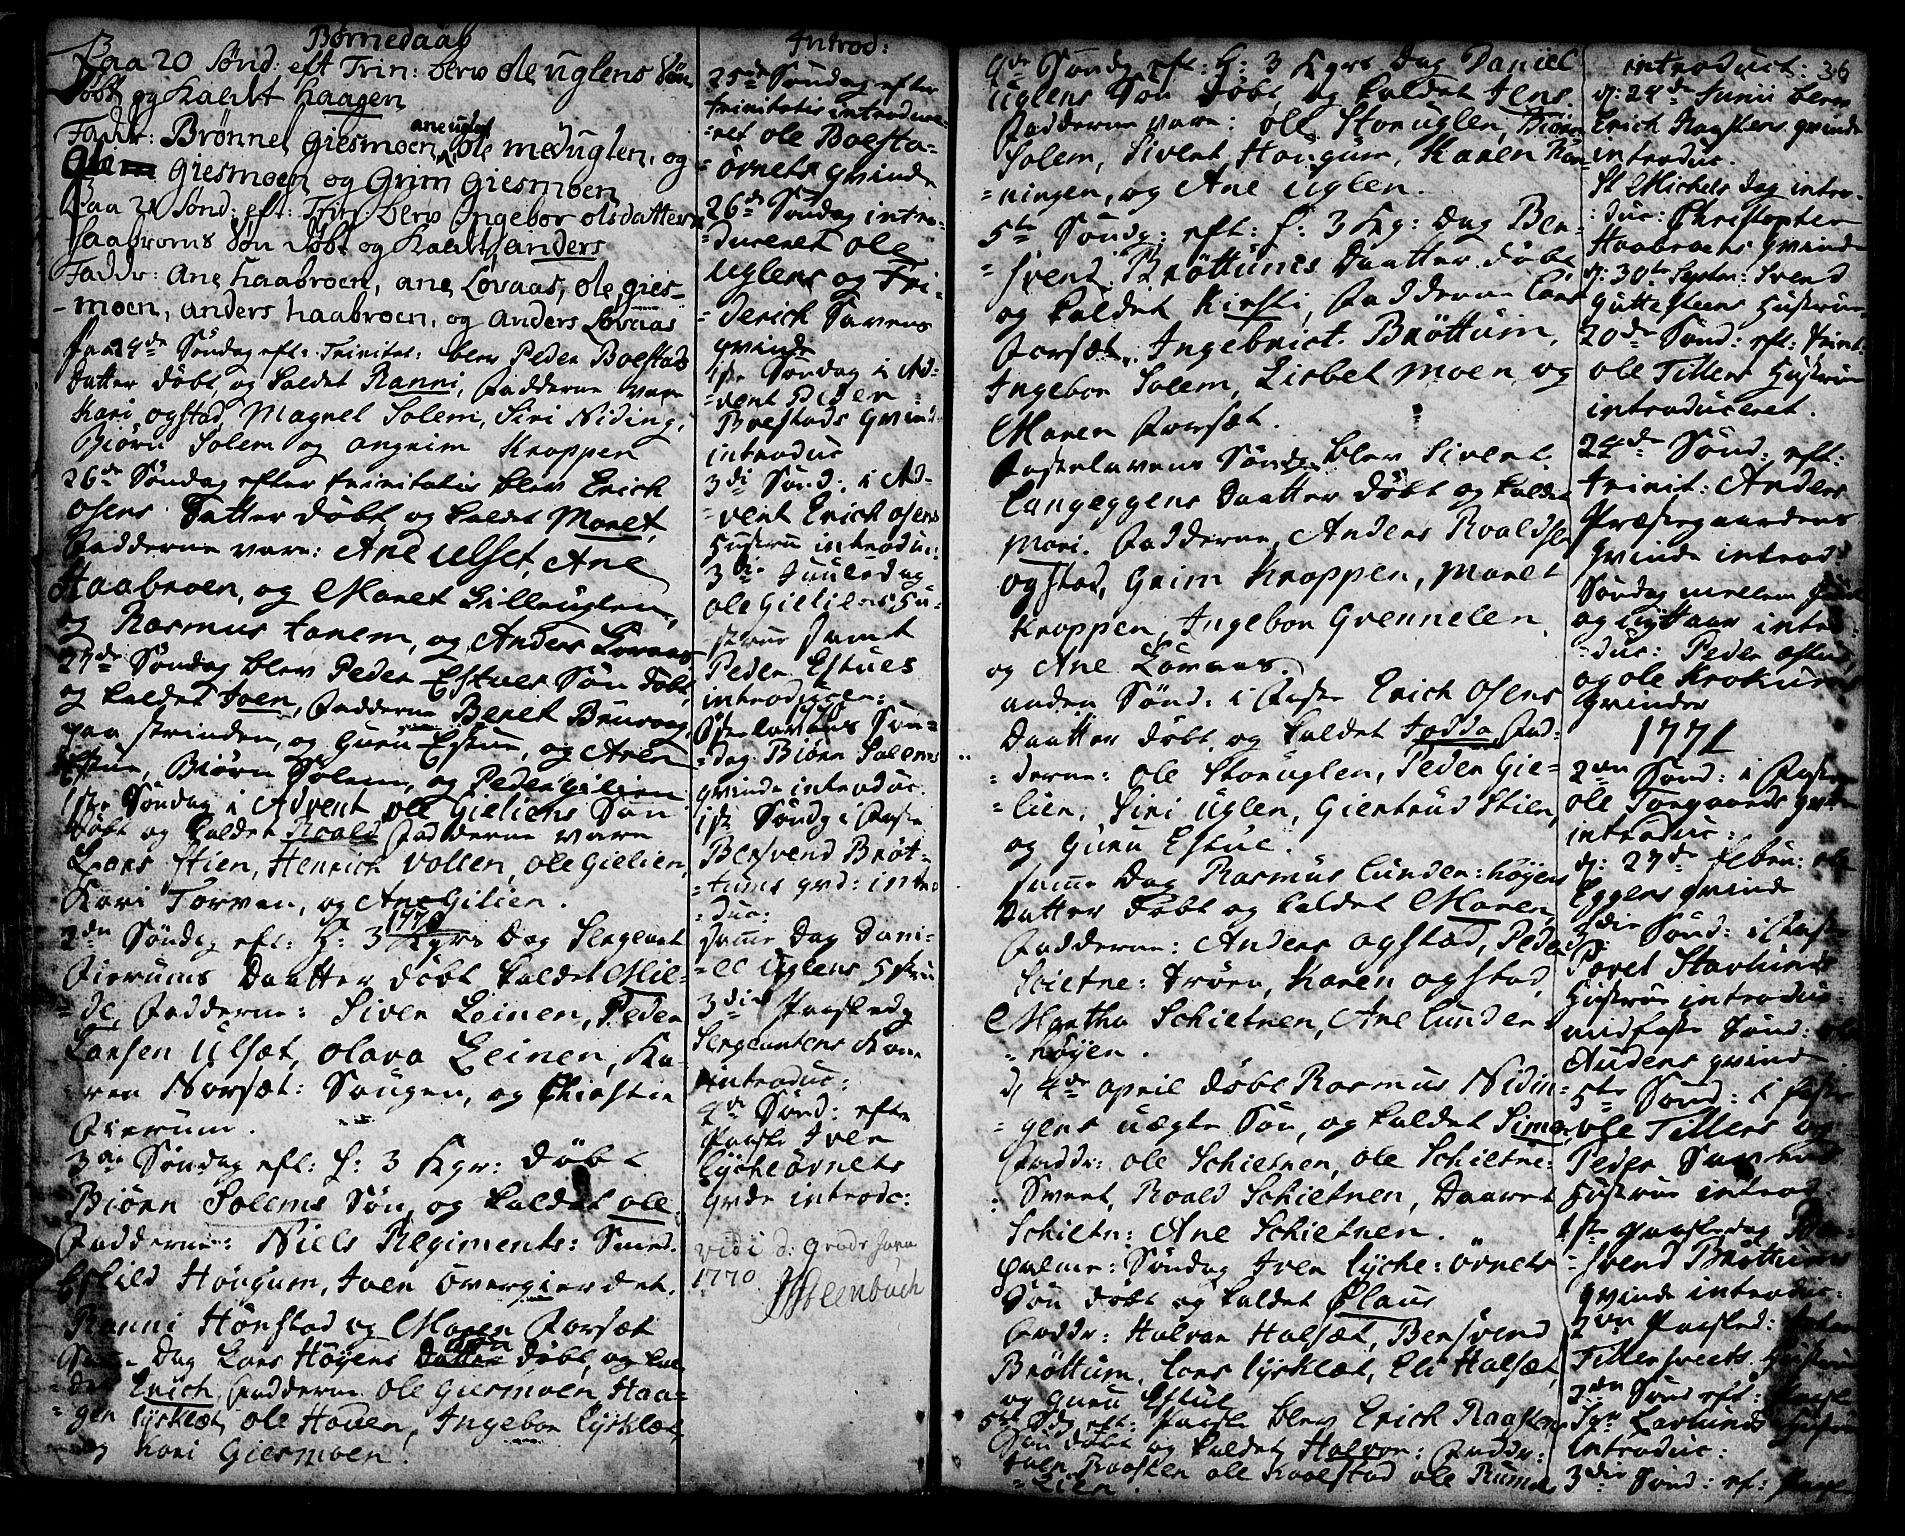 Børnedaab
Paa 20 Sønd: eft Trin: blev ole uglens Søn
døbt og Kaldt haagen
Faddr: Brønnel giesmoen ane uglen ole meduglen, og
giesmoen og Grim giesmoen
Paa 21 Sønd: eft: Trin: blev Ingebor olsdatter
haabroens Søn døbt og Kaldt, anders
Faddr: ane haabroen, ane Lovaas, ole gies-
-moen, anders haabroen, og anders Lovaas
paa 24de Søndag eft: Trinitat: blev Peder Boestads
datter døbt og kaldet Ranni, Fadderne vare
Kari ogstad, Magnel Solem, Siri Niding,
Biørn Solem og angrim Kroppen
26de Søndag efter trinitatis blev Erich
Osens Datter døbt og kaldet Maret,
Fadderne vare: Ane Ulset, Ane
Haabroen, og Maret Lilleuglen,
og Rasmus tanem, og Anders Lovaas
27de Søndag blev Peder Estues Søn døbt
og kaldet Joen, Fadderne Beret Bruraag
paa strinden, og Guru Estue, og Aren
Estue, Biørn Solem, og Peder Gilien
1ste Søndag i Advent ole Gieliens Søn
døbt og kaldet Roald Fadderne vare
Lars Stien, Henrich Vollen, ole Gielien,
Kari Torven, og Ane Gilien.
1770
2den Søndg eft: H: 3 Kgrs Dag Sergeant
Fierums Daatter døbt kaldet Mil-
-de, Fadderne: Siver Leinen, Peder
Larsen Ulsæt, olava Leinen, Ka-
-ren Norsæt: Saugen, og Christie
Fierum.
3die Søndag eft: H: 3 Kgr: døbt
Biørn Solems Søn, og kaldet ole.
Fadderne: Niels Regiments: Smed.
Eskild Hougum, Iver Overgierdet.
Ranni Hønstad og Maren Forsæt
Samme Dag Lars Høyens Søn døbt, og kal-
det Erich Fadderne ole Giesmoen, Haa-
gen lysklæt, ole Hoven, Ingebor lysklæt,
og Kari Giesmoen.
Introd:
25de Søndag efter
trinitatis introduce-
-ret ole Boesta-
ørnets qvinde
26de Søndag intro-
-duceret ole
Uglens og Fri-
derich Savens
qvinde
1ste Søndag i Ad-
-vent Peder
Boestads qvind
introduc
3di Sønd: i Ad-
-vent Erich Osens
Hustrue introduc:
3die Juuledag
ole Gieliens Hu-
-strue samt
Peder Estues
introducer:
Fastelavens Søn-
-dag Biørn Solems
qvinde introduc.
1ste Søndg i Faste
Bersvend Brøt-
-tums qvd: intro
-duc:
samme Dag Dani-
-el Uglens Hstru
3die Paaskedg
Sergeantens Kone
introduc:
4de Sønd: efter
Paaske Iver
lyche ørnets
qvde introdc:
vidi d:
1770
4de Søndg eft: H: 3 Kgrs Dag Daniel
Uglens Søn døbt og kaldet Jens.
Fadderne vare: ole Storuglen, Biørn
Solem, Sivert Hougum, Karen Røn-
=ningen, og Ane Uglen.
5te Søndg: eft: H: 3 Kg: Dag Ber-
-svend Brøttums Daatter døbt
og kaldet Kirsti, Fadderne Lars
Forsæt, Ingebrict Brøttum,
Ingebor Solem, Lisbet Moen og
Maren Forsæt.
Fastelavens Søndg blev Sivert
Langeggens Daatter døbt og kaldet
Mari. Fadderne Anders Roaldsen
ogstad, Grim Kroppen, Maret
Kroppen, Ingebor Grennelen
og Ane Lovaas.
anden Sønd: i Faste Erich Osens
Daatter døbt og kaldet Jodda, Fad-
-derne: ole Storuglen, Peder Gie-
-lien, Siri Uglen, Giertrud Stien,
og Guru Estue.
samme Dag Rasmus Lunden: høyens
Datter døbt og kaldet Maren,
Fadderne: Anders ogstad, Peder
Skietne: trøen, Karen ogstad,
Martha Schietnen, Ane Lunden
-høyen.
d. 4de april døbt Rasmus Nidin-
-gens uægte Søn, og kaldet Simon,
Faddr: ole Schietnen, ole Schietne:
Sveet, Roald Schietnen, Daaret
Schietn: Ane Schietnen.
palme: Søndag Iver lyche: ørnets
Søn døbt og kaldet Claus
Faddr: Halvor Halsæt, Bersvend
Brøttum, Lars lysklæt, Eli Halsæt,
og Guru Estue
5te Sdg eft: Paaske blev Erich Raastens
Søn døbt og kaldet Halvor: Faddr:
Iver Raasten ole Roaldstad ole Rum
-lien.
introduct: 36
d: 24de Junii blev
Erich Raastens qvinde
introduc.
St Michels Dag intro-
:duc: Christopher
Haabroens qvinde
d: 30te Septbr: Svend
Guttestuens Hustrue
20de Sønd: eft: trinit:
ole Tillers Hustrue
introduceret.
24de Sønd: eft:
trinit: Anders
Præstegaardens
qvinde introd:
Søndag mellem Juul
og Nytaar intro:
-duc: Peder ostad,
og ole Krokums
qvinder
1771
2den Sønd: i Faste
ole Torgaards qvde
introduc:
d: 27de febru: ole
Eggens qvinde
3die Sønd: i Faste
Povel Stavlunds
Hustrue introduc:
midfaste Sønd: ole
Audens qvinde
5te Sønd: i faste
ole Tillers og
Peder
Hustrue introd:
1ste Paaskedag Ber-
-svend Brøttums
qvinde introduc:
2den Paasked:
Tillersveets Hustrue
2den Sønd eft: Paaske
Introduc:
3die Sønd: ef: Paaske